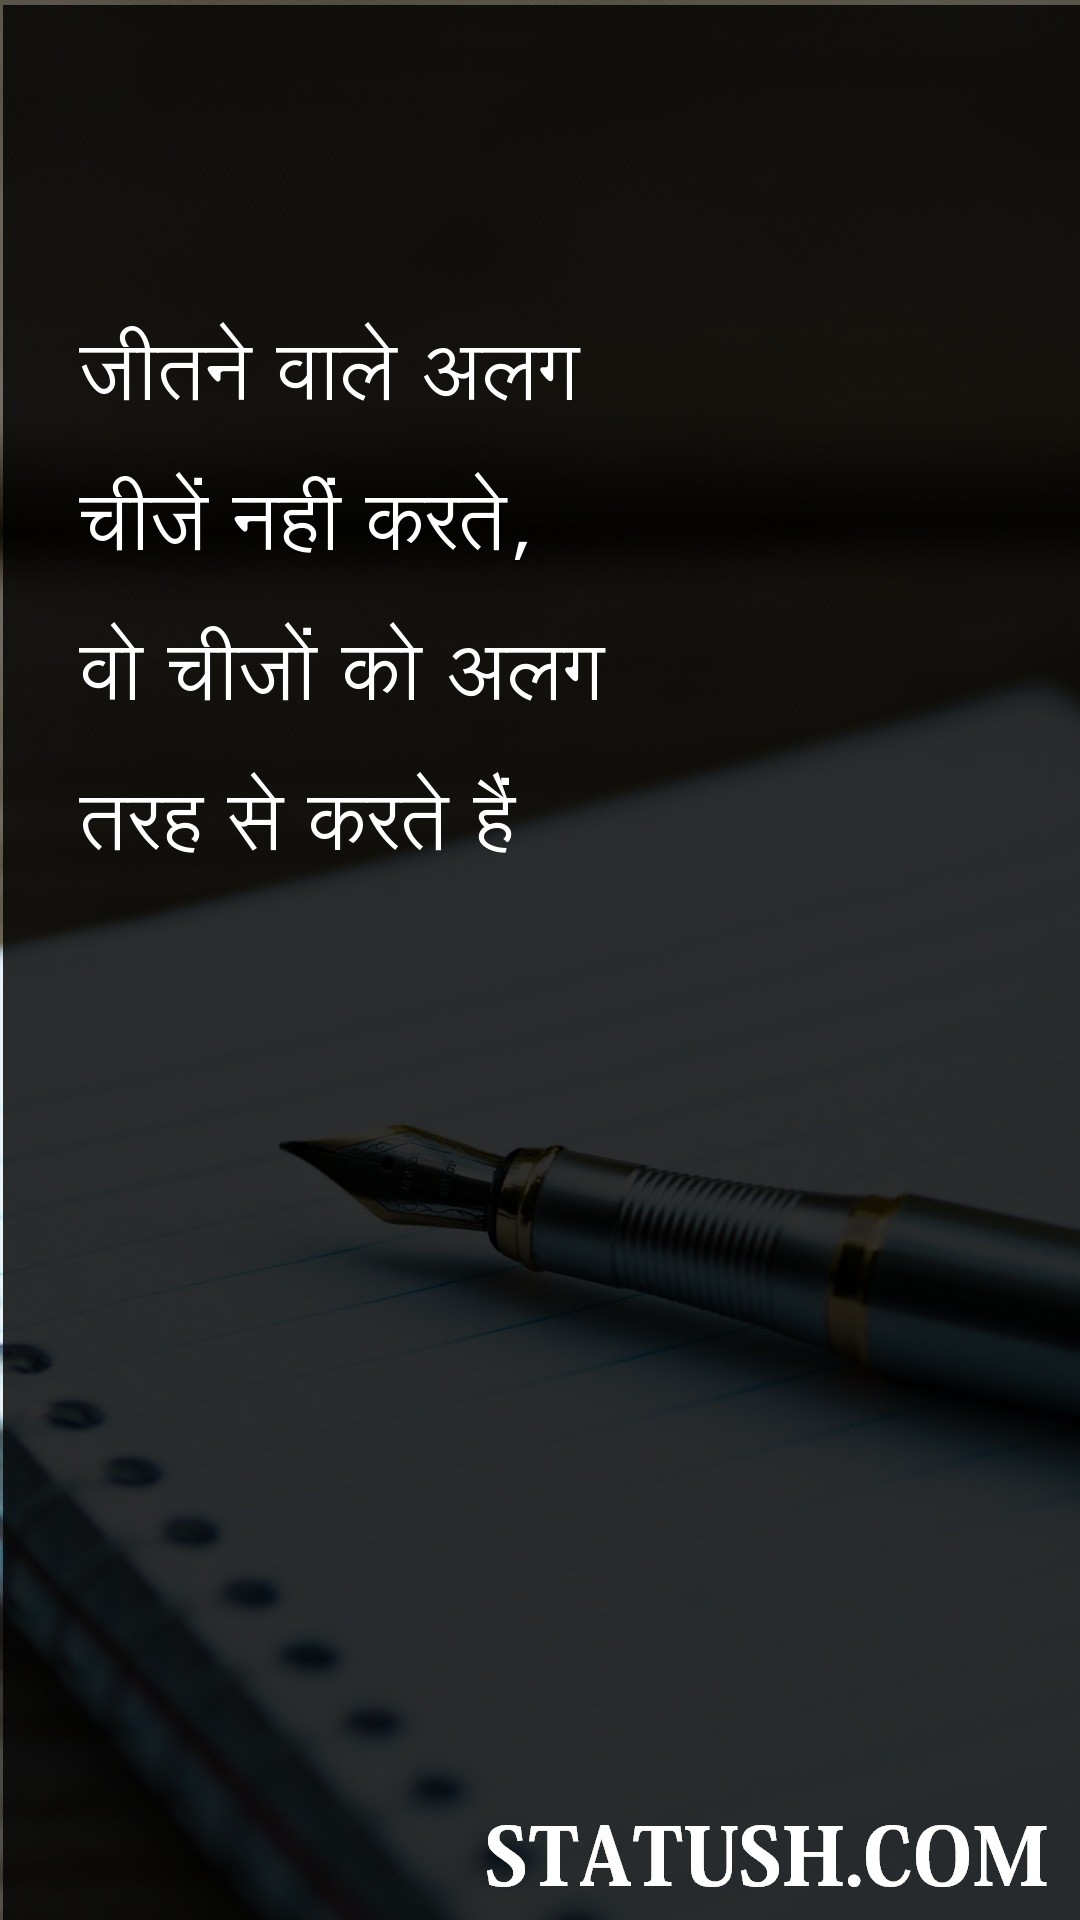 जीतने वाले अलग
चीजें नहीं करते,
वो चीजों को अलग
तरह से करते हैं
STATUSH.COM